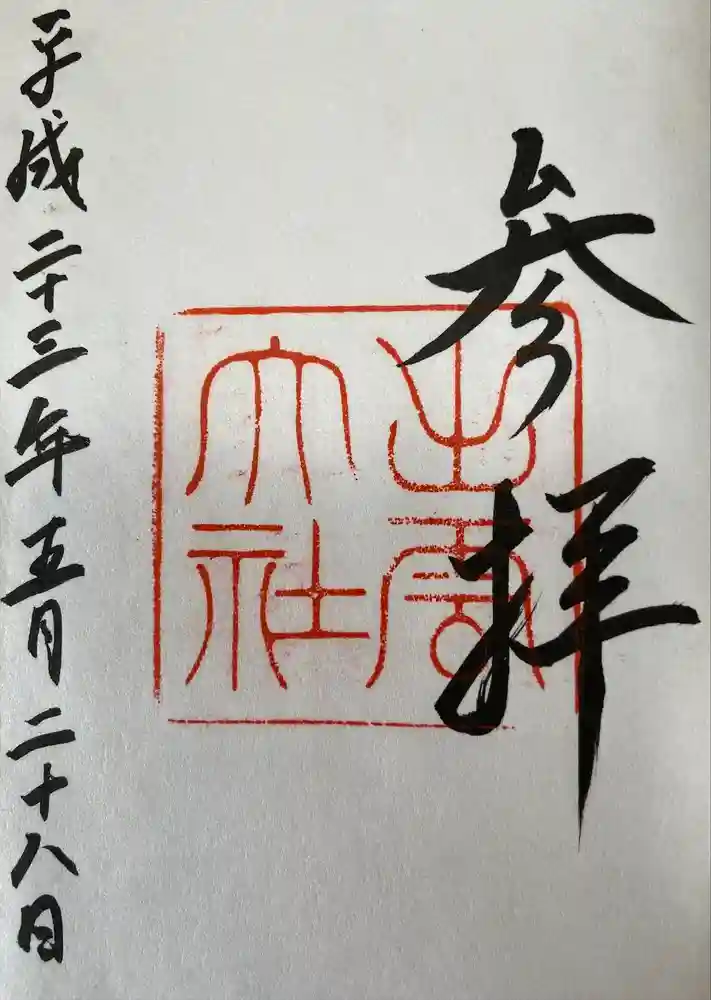 参拝
出雲
大社
平成二十三年五月二十八日